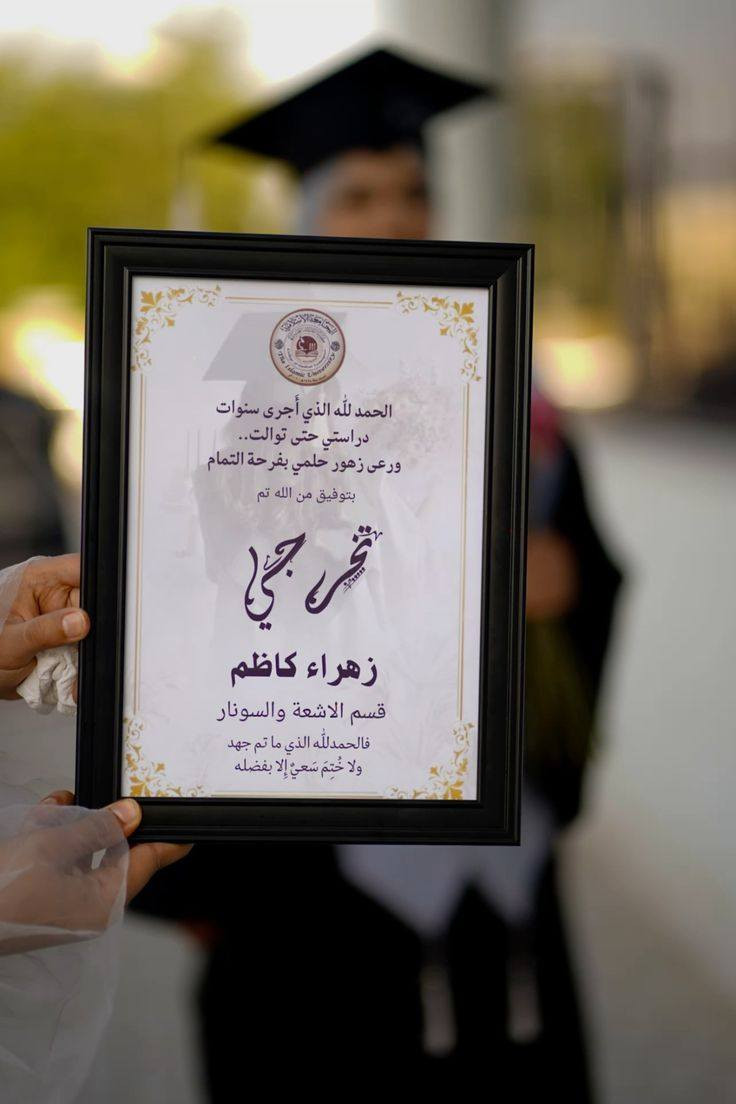 الجامعة الاسلامية
The Islamic University
الحمد لله الذي أجرى سنوات
دراستي حتى توالت..
ورعى زهور حلمي بفرحة التمام
بتوفيق من الله تم
تخرجي
زهراء كاظم
قسم الاشعة والسونار
فالحمدلله الذي ما تم جهد
ولا خُتِمَ سَعيٌ إلا بفضله